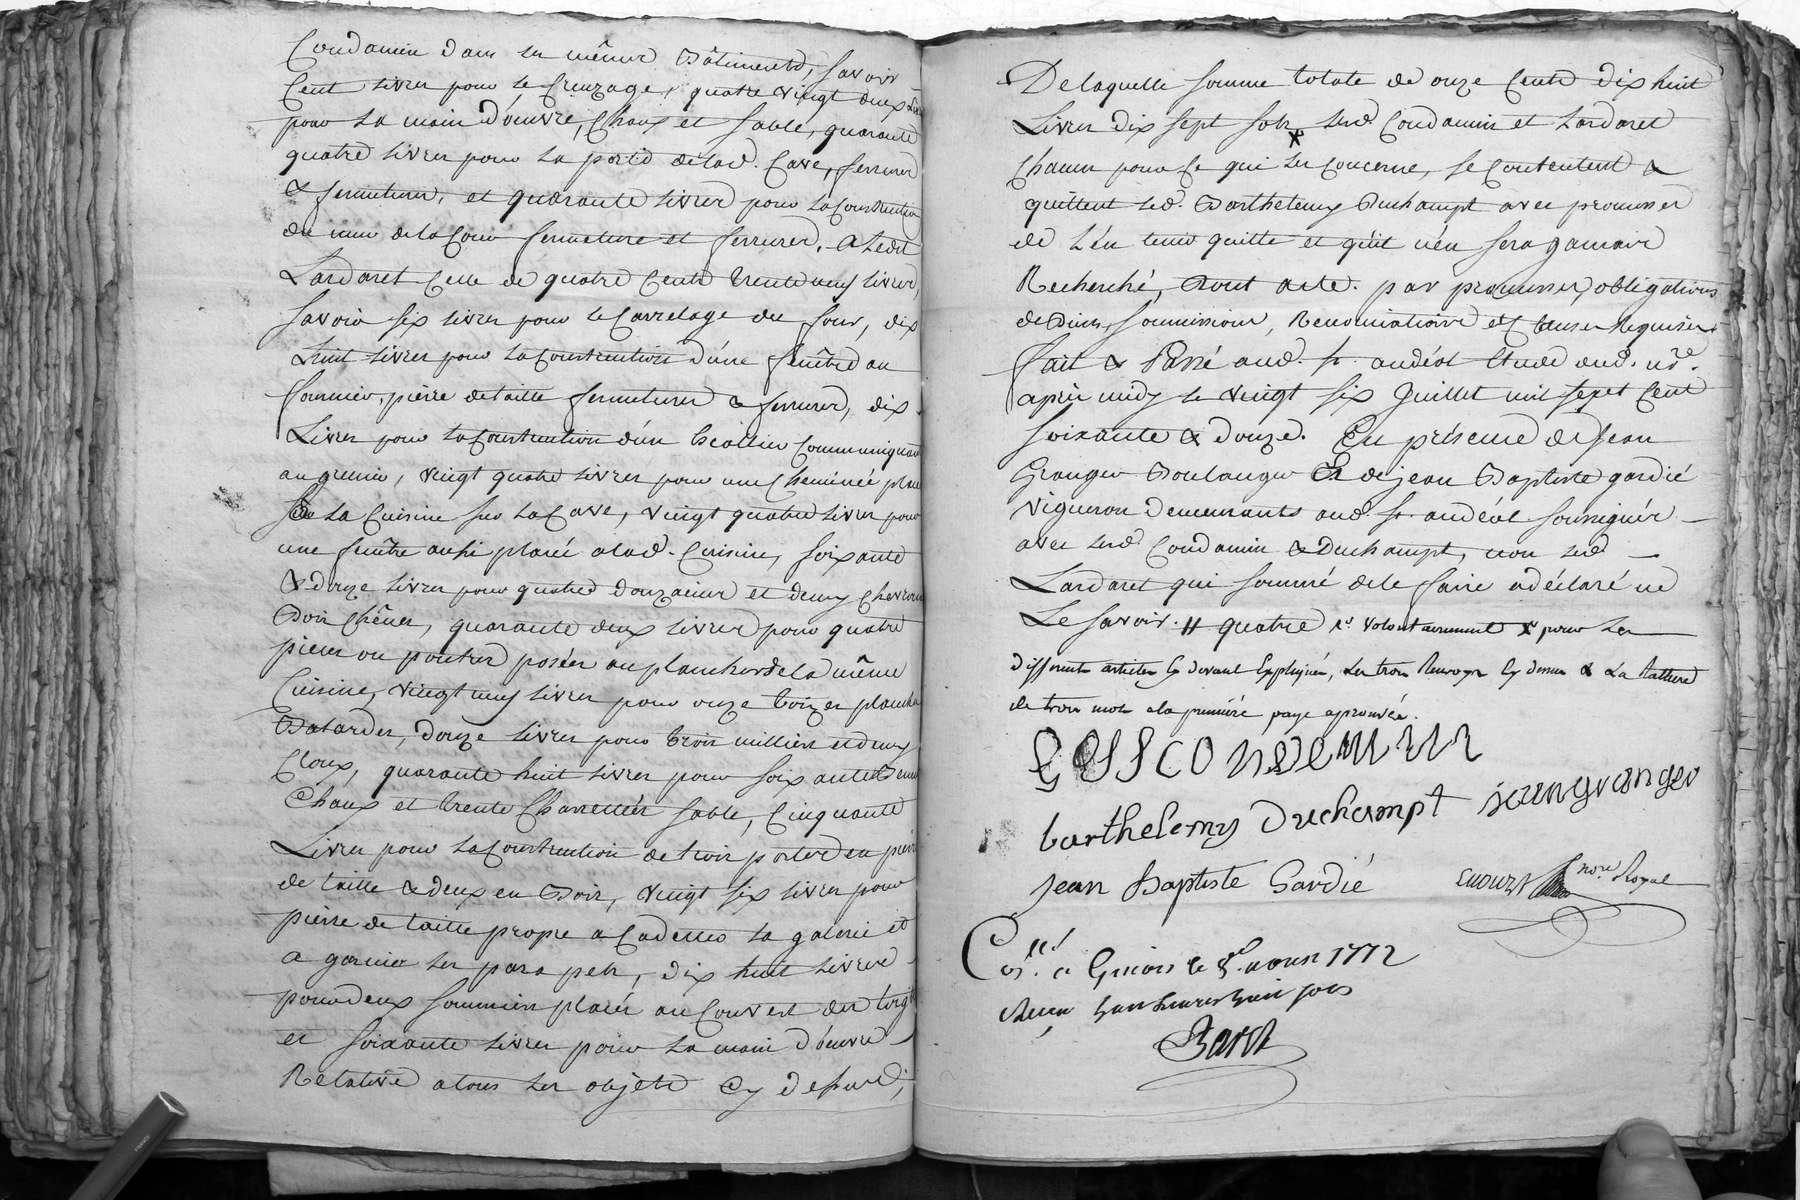 Condamin dans les mêmes Bâtiments, savoir
Cent livres pour le Creuzage, quatre vingt deux
pour la main d'oeuvre, Chaux et sable, quarante
quatre livres pour la porte de lad. Cave, ferrures
& fermetures, et quarante livres pour la Construction
du mur de la Cour fermeture et ferrures. a Ledit
Lardaret Celle de quatre Cents trente neuf livres,
savoir six livres pour le Carrelage du four, dix
huit livres pour la Construction d'une fenêtre au
fournier, pierre de taille fermetures & ferrures, dix
Livres pour la Construction d'un Communiquant
au grenier, vingt quatre livres pour une Cheminée placée
la Cuisine sur la Cave, vingt quatre livres pour
une fenêtre aussi placée a lad. Cuisine, soixante
& douze livres pour quatre douzaines et demy Chevrons
Bois Chênes, quarante deux livres pour quatre
pieces ou poutres posées au plancher de la même
Cuisine, vingt neuf livres pour onze toizes planches
Batardes, douze livres pour trois milliers et demy
Cloux, quarante huit livres pour soixante
Chaux et trente Charretées sable, Cinquante
Livres pour la Construction de trois portes en pierre
de taille & deux en Bois, vingt six livres pour
pierre de taille propre a Cadetter la galerie et
a garnir les parapets, dix huit livres
pour deux sommiers placés au Couvert des
et soixante livres pour la main d'oeuvre
Relative a tous les objets Cy dessus;
De laquelle somme totale de onze Cents dix huit
Livres dix sept sols lesd. Condamin et Lardaret
Chacun pour Ce qui les Concerne, se Contentent &
quittent led. Barthelemy Duchampt avec promesses
de l'en tenir quitte et qu'il n'en sera jamais
Recherché, Dont acte. par promesses, obligations
de Biens, soumissions, Renonciations et Clauses Requises
fait & Passé aud. st. andéol Etude dud. nre.
après midy le vingt six Juillet mil sept Cent
soixante & douze. En présence de Jean
Granger Boulanger & de jean Baptiste gardié
Vigneron demeurants aud. st. andéol soussignés
avec lesd. Condamin & Duchampt, non led.
Lardaret qui sommé de le faire a déclaré ne
Le savoir. // quatre volontairement x pour les
differents articles Cy devant Expliqués, Les trois Renvoys Cy dessus & La Rature
de trois mots a la première page aprouvés.
Condemin
barthelemy Duchampt jean granger
Jean Baptiste Gardié
nore. Royal
Conllé. a Givors le aoust 1772
Reçu